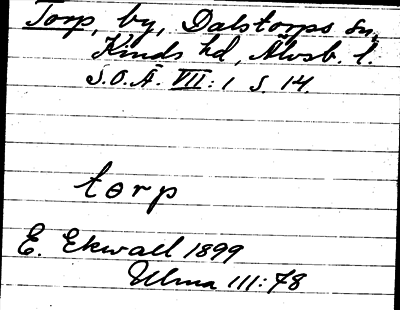 Torp, by, Dalstorps sn,
Kinds hd, Älvsb. l.
S.O.Ä. VII:1 s. 14.
torp
E. Ekwall 1899
Ulma 111:78